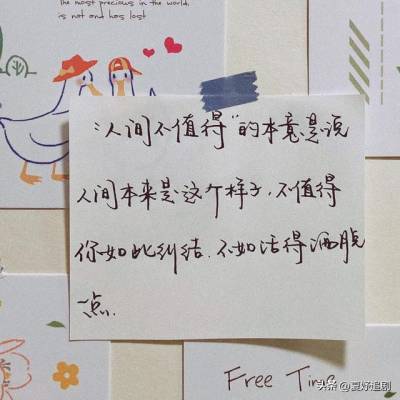 The most precious in the world,
is not and has lost
"人间不值得"的本意是说
人间本来是这个样子,不值得
你如此纠结.不如活得洒脱
一点.
Free Time
头条@夏妤追剧